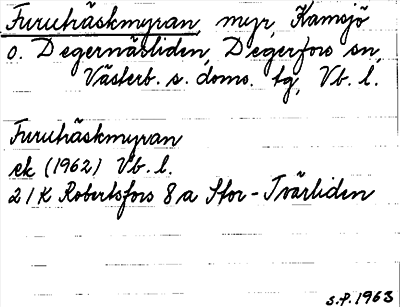 Furuträskmyran, myr, Kamsjö
o. Degernäsliden, Degerfors sn,
Västerb. s. doms. tg, Vb. l.
Furuträskmyran
ek (1962) Vb. l.
21K Robertsfors 8a Stor-Tvärliden
S.P. 1963